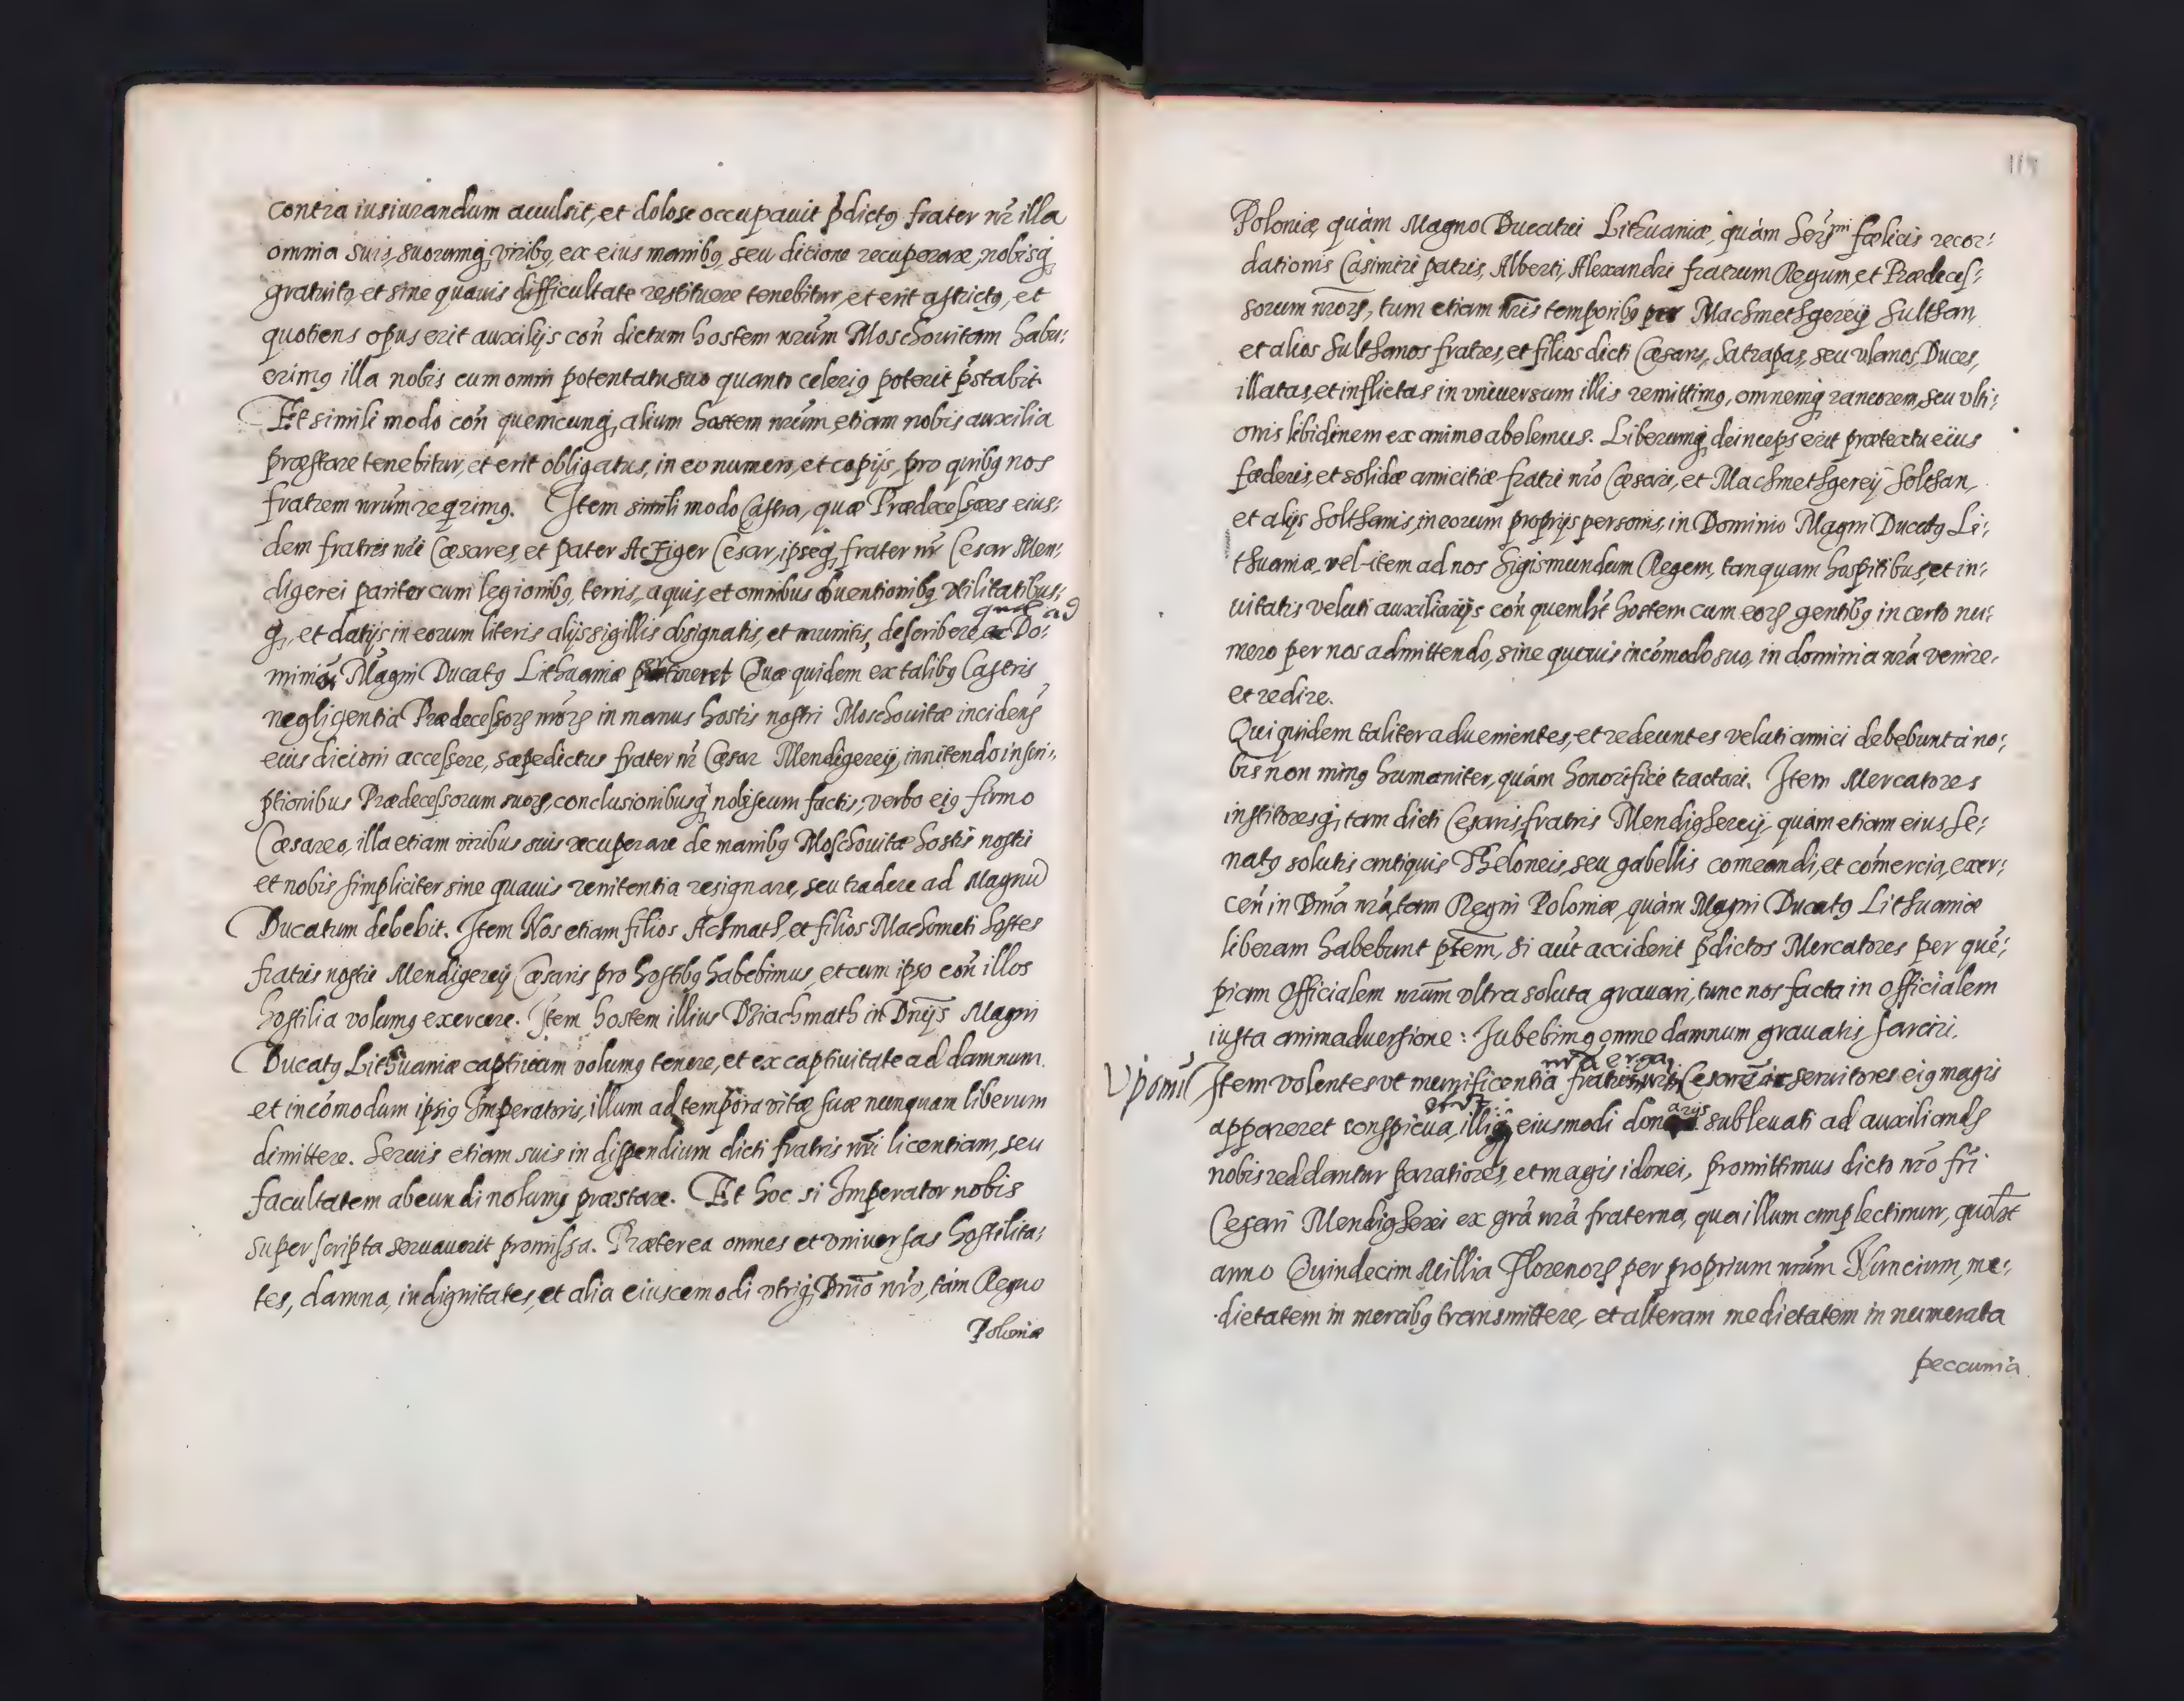 contra iusiurandum auulsit, et dolose occupauit p̄dictꝯ frater nr̄ illa
omnia suis, suorumq́ꝫ viribꝯ, ex eius manibꝯ, seu ditione recuperare, nobisq́ꝫ
gratuitò, et sine quauis difficultate restituere tenebitur, et erit astrictꝯ, et
quotiens opus erit auxilijs con̄ dictum hostem nr̄um Moschouitam habu:
erimꝯ illa nobis cum omni potentatu suo quanto celeriꝯ poterit p̄stabit
Et simili modo con̄ quemcunq́ꝫ alium hostem nr̄um, etiam nobis auxilia
præstare tenebitur, et erit obligatus, in eo numero, et copijs, pro quibꝯ nos
fratrem nr̄um reqrimꝯ. Item simili modo Castra, quæ Prædecessores eius:
dem fratris nr̄i Cæsares, et pater Acziger Cesar, ipseq́ꝫ frater nr̄ Cesar Men:
digerei pariter cum legionibꝯ, terris, aquis, et omnibus ꝓuentionibꝯ vtilitatibus:
quæ ad
q́ꝫ, et datijs in eorum literis alijs sigillis obsignatis, et munitis, describere, Do:
minium Magni Ducatꝯ Lithuaniæ Quæ quidem ex talibꝯ Castris
negligentia Prædecessorꝝ nr̄orꝝ in manus hostis nostri Moschouitæ incidens
eius dicioni accessere, sæpedictus frater nr̄ Cæsar Mendigereij, innitendo inscri:
ptionibus Prædecessorum suorꝝ, conclusionibusq́ꝫ nobiscum factis, verbo eiꝯ firmo
Cæsareo, illa etiam viribus suis recuperare de manibꝯ Moschouitæ hostis nostri
et nobis simpliciter sine quauis renitentia resignare, seu tradere ad Magnū
Ducatum debebit. Item Nos etiam filios Achmath, et filios Machometi hostes
fratris nostri Mendigereij Cæsaris pro hostibꝯ habebimus, et cum ipso con̄ illos
hostilia volumꝯ exercere. Item hostem illius Dziachmath in Dn̄ijs Magni
Ducatꝯ Lithuaniæ captiuum volumꝯ tenere, et ex captiuitate ad damnum
et incōmodum ipsiꝯ Imperatoris, illum ad tempora vitæ suæ nunquam liberum
dimittere. Seruis etiam suis in dispendium dicti fratris nr̄i licentiam, seu
facultatem abeundi nolumꝯ præstare. Et hoc si Imperator nobis
superscripta seruauerit promissa. Præterea omnes et vniuersas hostilita:
tes, damna, indignitates, et alia eiuscemodi vtriq́ꝫ Dn̄io nr̄o, tàm Regno
Poloniæ
Poloniæ, quàm Magno Ducatui Lithuaniæ, quàm Ser̄ᵐⁱ fœlicis recor:
dationis Casimiri patris, Alberti, Alexandri fratrum Regum, et Prædeces:
sorum nr̄orꝝ, tum etiam nr̄is temporibꝯ per Machmethgereij Sulthan,
et alios Sulthanos fratres, et filios dicti Cæsaris, Satrapas, seu vlanos, Duces,
illatas, et inflictas in vniuersum illis remittimꝯ, omnemq́ꝫ rancorem, seu vlti:
onis libidinem ex animo abolemus. Liberumq́ꝫ deinceps erit prætextu eius
fœderis, et solidæ amicitiæ fratri nr̄o Cæsari, et Machmethgereij Solthan,
et alijs Solthanis, in eorum proprijs personis, in Dominio Magni Ducatꝯ Li:
thuaniæ, vel item ad nos Sigismundum Regem, tanquam hospitibus, et in:
uitatis veluti auxiliarijs con̄ quemlꝫt hostem cum eorꝝ gentibꝯ in certo nu:
mero per nos admittendo, sine quouis incōmodo suo, in dominia nr̄a venire,
et redire.
Qui quidem taliter aduenientes, et redeuntes veluti amici debebunt à no:
bis non minꝯ humaniter, quàm honorificè tractari. Item Mercatores
institoresq́ꝫ, tam dicti Cesaris fratris Mendighereij, quàm etiam eius Se:
natꝯ solutis antiquis Theloneis, seu gabellis comeandi, et cōmercia exer:
cen̄ in Dn̄ia nr̄a, tam Regni Poloniæ, quàm Magni Ducatꝯ Lithuaniæ
liberam habebunt ptem̄, Si aūt acciderit p̄dictos Mercatores per quē:
piam Officialem nr̄um vltra soluta grauari, tunc nos facta in officialem
iusta animaduersione: Iubebimꝯ omne damnum grauatis sarciri.
nr̄a erga
Item volentes vt munificentia fratrem nr̄m Cesarē seruitores eiꝯ magis
arijs
appareret conspicua, eiusmodi don subleuati ad auxiliandꝫ
nobis reddantur paratiores, et magis idonei, promittimus dicto nr̄o fr̄i
Cesari Mendigherei ex grā nr̄a fraterna, qua illum amplectimur, quolꝫt
anno Quindecim Millia Florenorꝝ per proprium nr̄um Nuncium, me:
dietatem in mercibꝯ transmittere, et alteram medietatem in numerata
peccunia